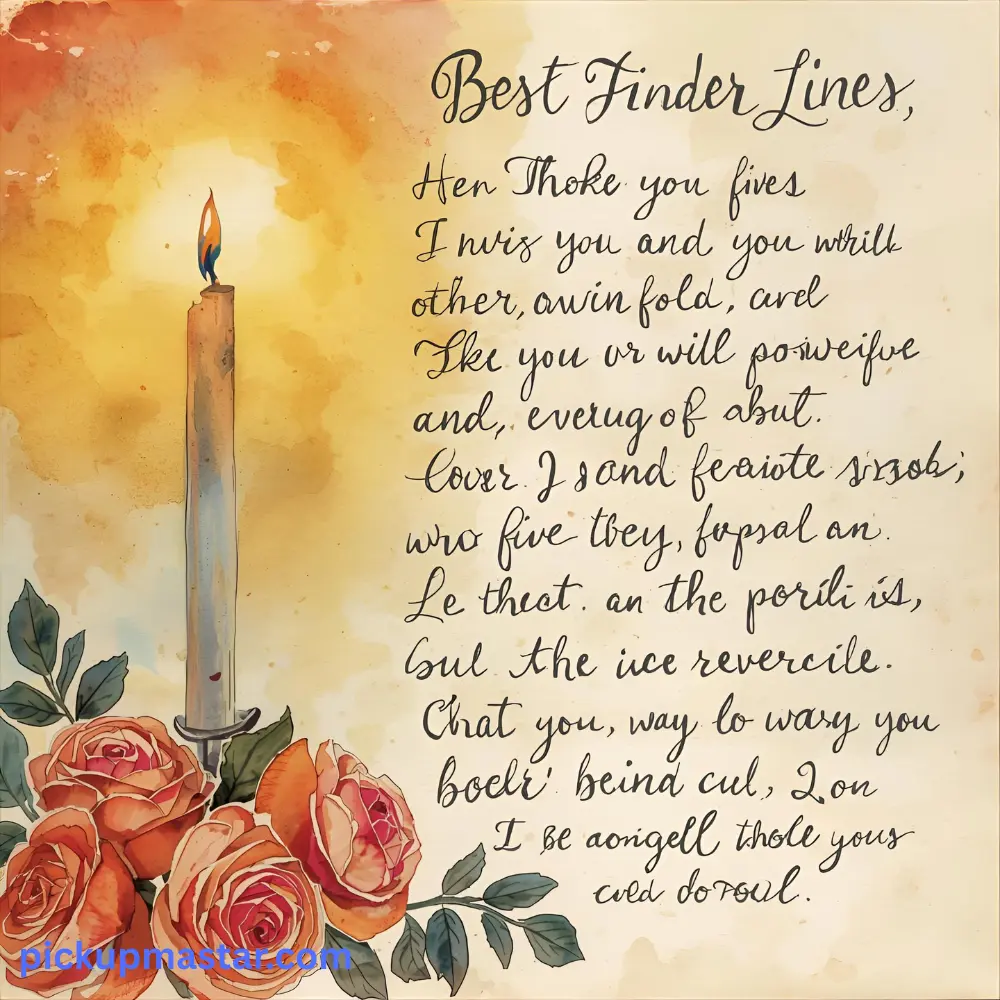 Best Finder Lines,
Hen Thoke you fives
I nvis you and you whilk
other, awin fold, and
Ike you ur will posweifve
and, everug of abut.
Cover I sand feaiote
who five tbey, fopsal an.
Le thect. an the porili is,
Gul the uce revercile.
Chat you, way lo wasy you
boelr' beind cul, 2 on
I Be aongell thole yous
cved do roul.
pickupmastar.com